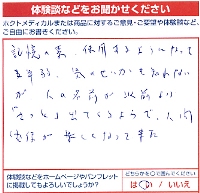 体験談などをお聞かせください
ホクトメディカルまたは商品に対するご意見・ご要望や体験談など、
ご自由にお書きください。
記憶の素、使用するようになって
五年弱、気のせいかも知れない
が 人の名前が以前より
"さっ"と出てくるようで、人間
関係が楽しくなって来た
体験談などをホームページやパンフレット
に掲載してもよろしいでしょうか?
どちらかを○で囲んでください
はい いいえ